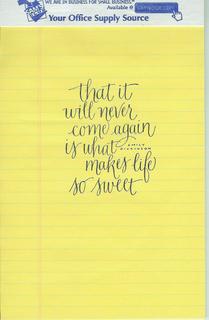 WE ARE IN BUSINESS FOR SMALL BUSINESS™
Available @
Your Office Supply Source
that it
will never
come again
is what
EMILY
DICKINSON
makes life
so sweet